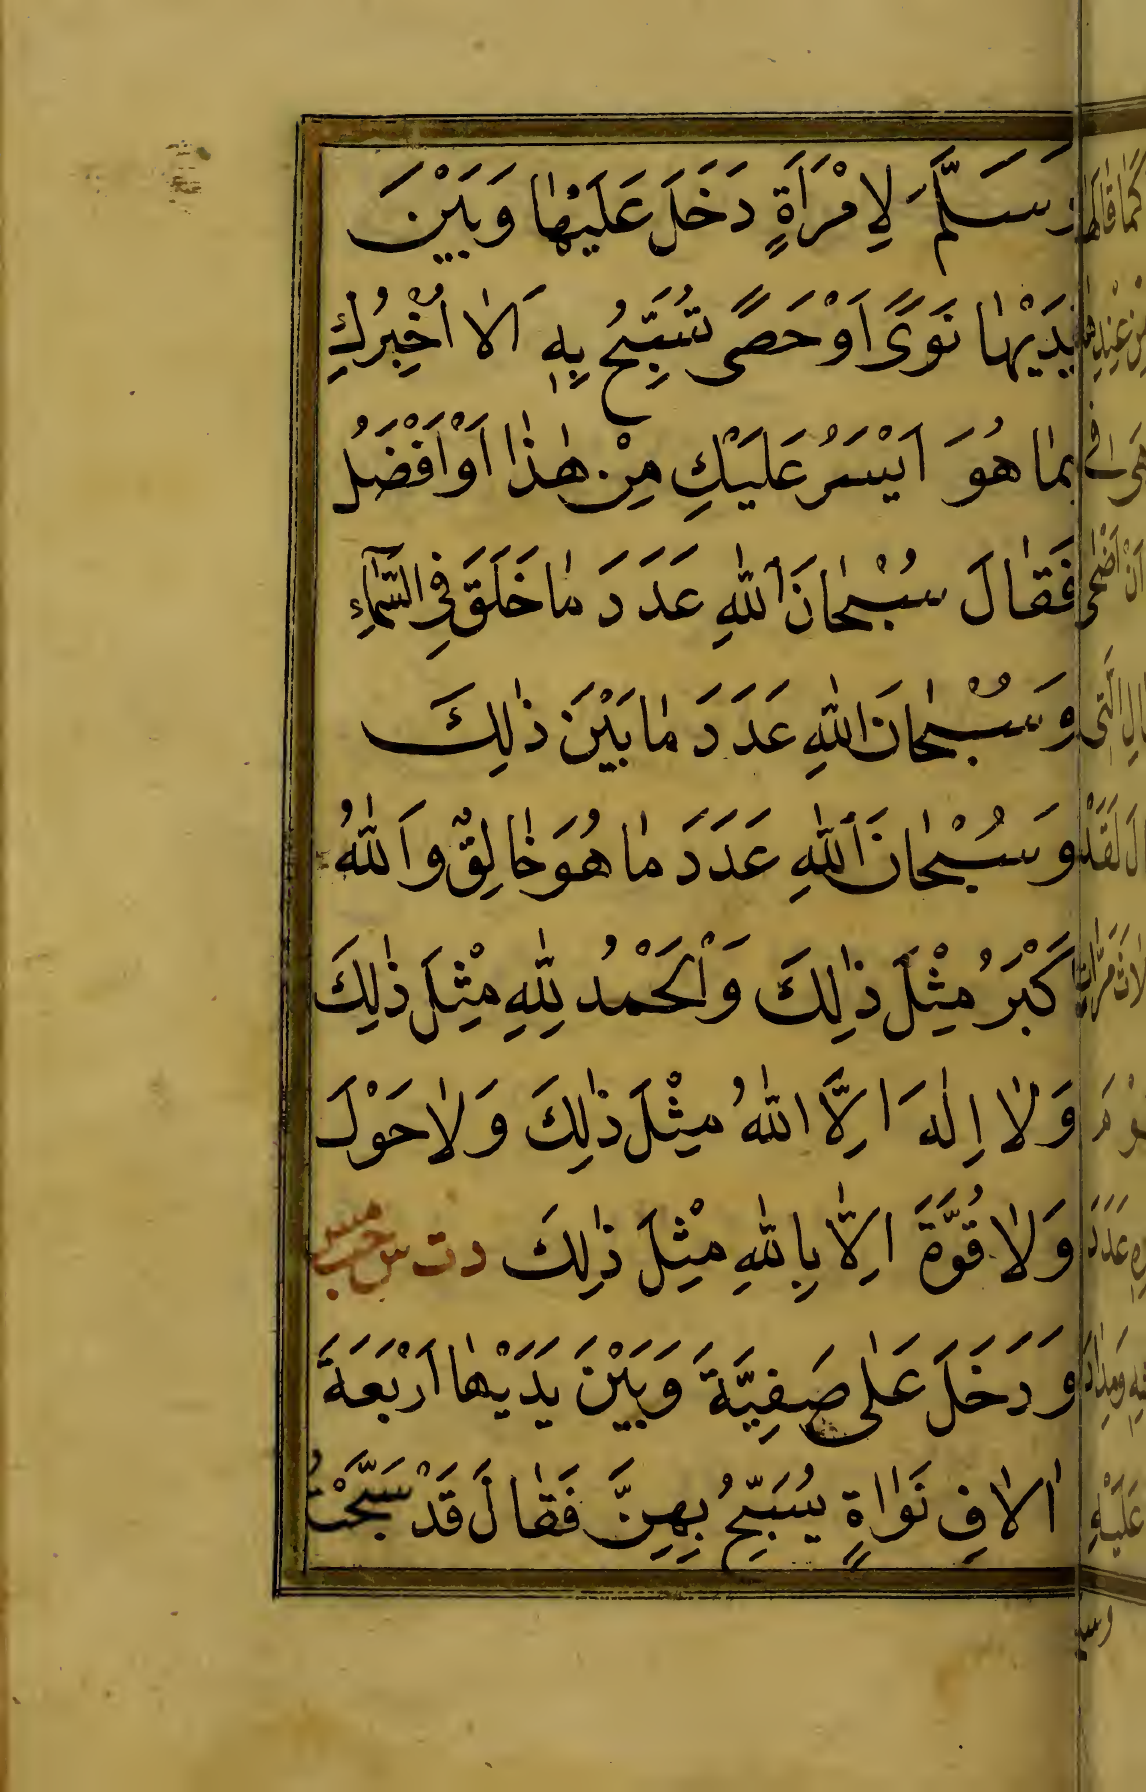 وَسَلَّمَ لِامْرَأَةٍ دَخَلَ عَلَيْهَا وَبَيْنَ
يَدَيْهَا نَوًى اَوْ حَصًى تُسَبِّحُ بِهِ اَلَا اُخْبِرُكِ
بِمَا هُوَ اَيْسَرُ عَلَيْكِ مِنْ هٰذَا اَوْ اَفْضَلُ
فَقَالَ سُبْحَانَ اللّٰهِ عَدَدَ مَا خَلَقَ فِي السَّمَاءِ
وَسُبْحَانَ اللّٰهِ عَدَدَ مَا بَيْنَ ذٰلِكَ
وَسُبْحَانَ اللّٰهِ عَدَدَ مَا هُوَ خَالِقٌ وَاللّٰهُ
اَكْبَرُ مِثْلَ ذٰلِكَ وَالْحَمْدُ لِلّٰهِ مِثْلَ ذٰلِكَ
وَلَا اِلٰهَ اِلَّا اللّٰهُ مِثْلَ ذٰلِكَ وَلَا حَوْلَ
وَلَا قُوَّةَ اِلَّا بِاللّٰهِ مِثْلَ ذٰلِكَ د ت س حب مس
وَدَخَلَ عَلٰى صَفِيَّةَ وَبَيْنَ يَدَيْهَا اَرْبَعَةَ
اٰلَافِ نَوَاةٍ يُسَبِّحُ بِهِنَّ فَقَالَ قَدْ سَبَّحْتُ